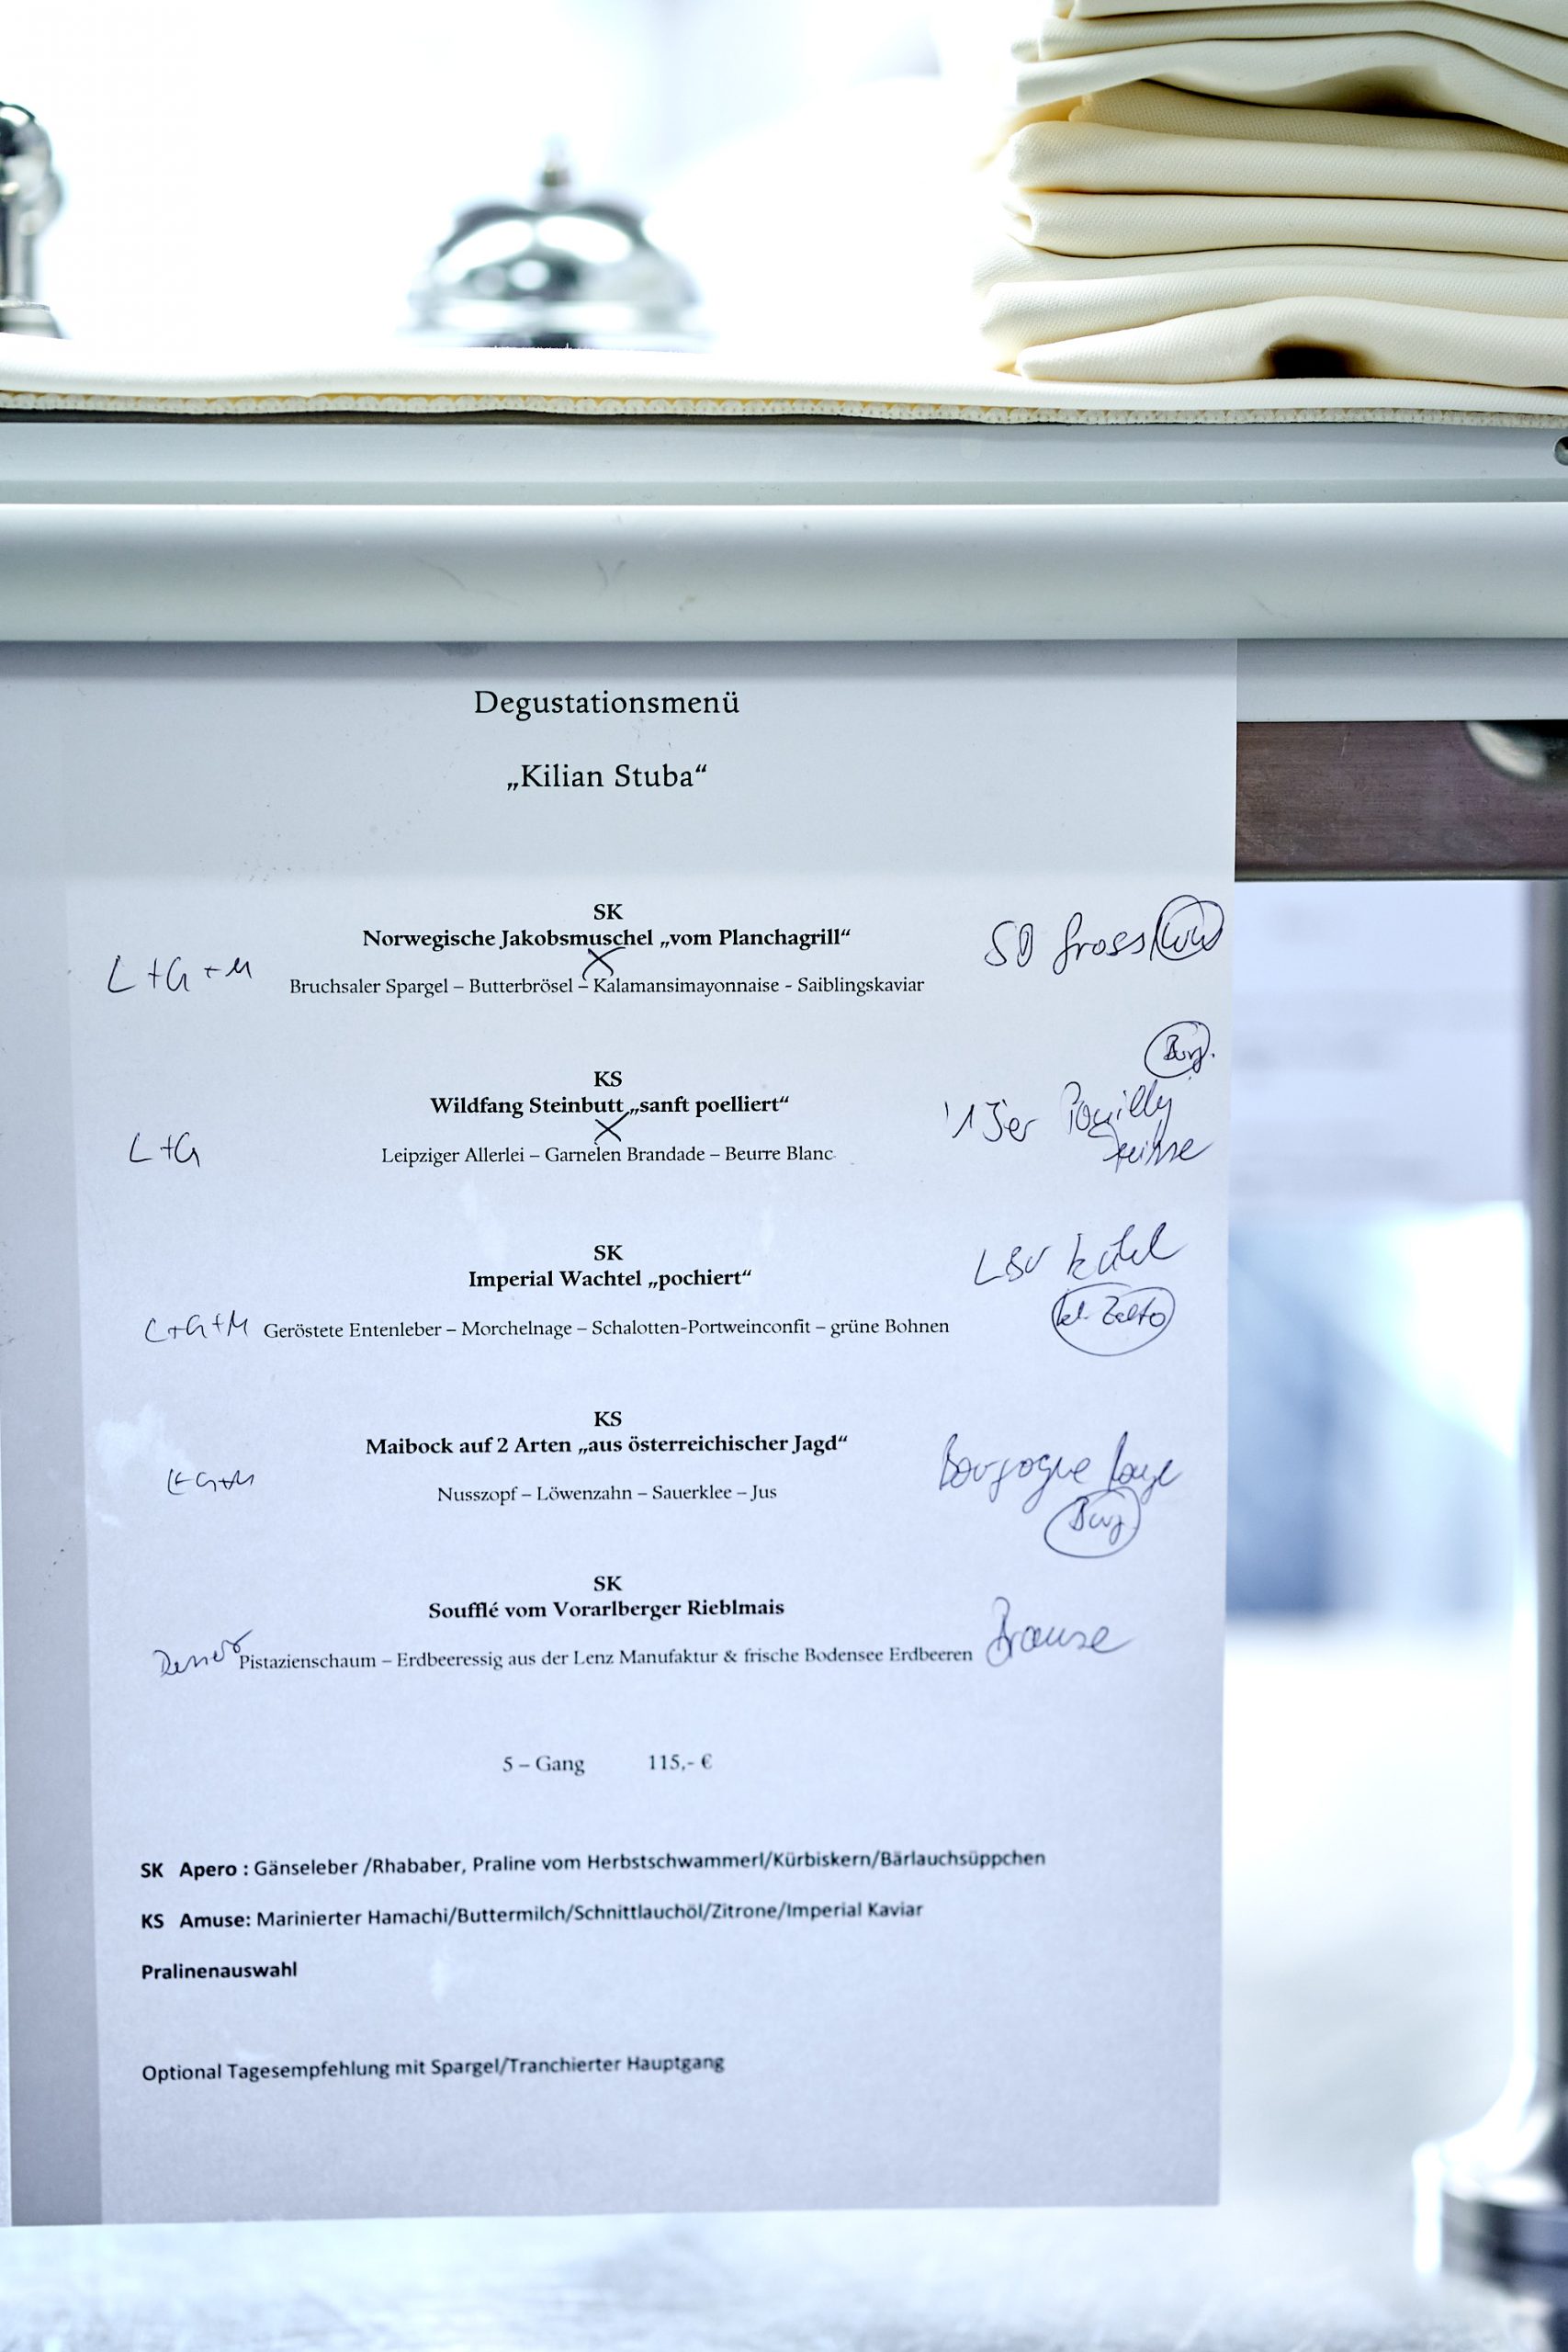 Degustationsmenü
„Kilian Stuba“
SK
Norwegische Jakobsmuschel „vom Planchagrill“
L+G+M
Bruchsaler Spargel – Butterbrösel – Kalamansimayonnaise - Saiblingskaviar
Burg.
KS
Wildfang Steinbutt „sanft poelliert“
'15er Pouilly
L+G
Leipziger Allerlei – Garnelen Brandade – Beurre Blanc
SK
Imperial Wachtel „pochiert“
L+G+M
Geröstete Entenleber – Morchelnage – Schalotten-Portweinconfit – grüne Bohnen
KS
Maibock auf 2 Arten „aus österreichischer Jagd“
Bourgogne
Nusszopf – Löwenzahn – Sauerklee – Jus
Burg
SK
Soufflé vom Vorarlberger Rieblmais
Brause
Pistazienschaum – Erdbeeressig aus der Lenz Manufaktur & frische Bodensee Erdbeeren
5 – Gang 115,- €
SK Apero : Gänseleber /Rhababer, Praline vom Herbstschwammerl/Kürbiskern/Bärlauchsüppchen
KS Amuse: Marinierter Hamachi/Buttermilch/Schnittlauchöl/Zitrone/Imperial Kaviar
Pralinenauswahl
Optional Tagesempfehlung mit Spargel/Tranchierter Hauptgang